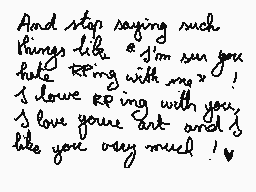 And stop saying such
things like "I'm sur you
hate RPing with me" !
I lowe RPing with you,
I love youre art and I
like you very much ! ♥